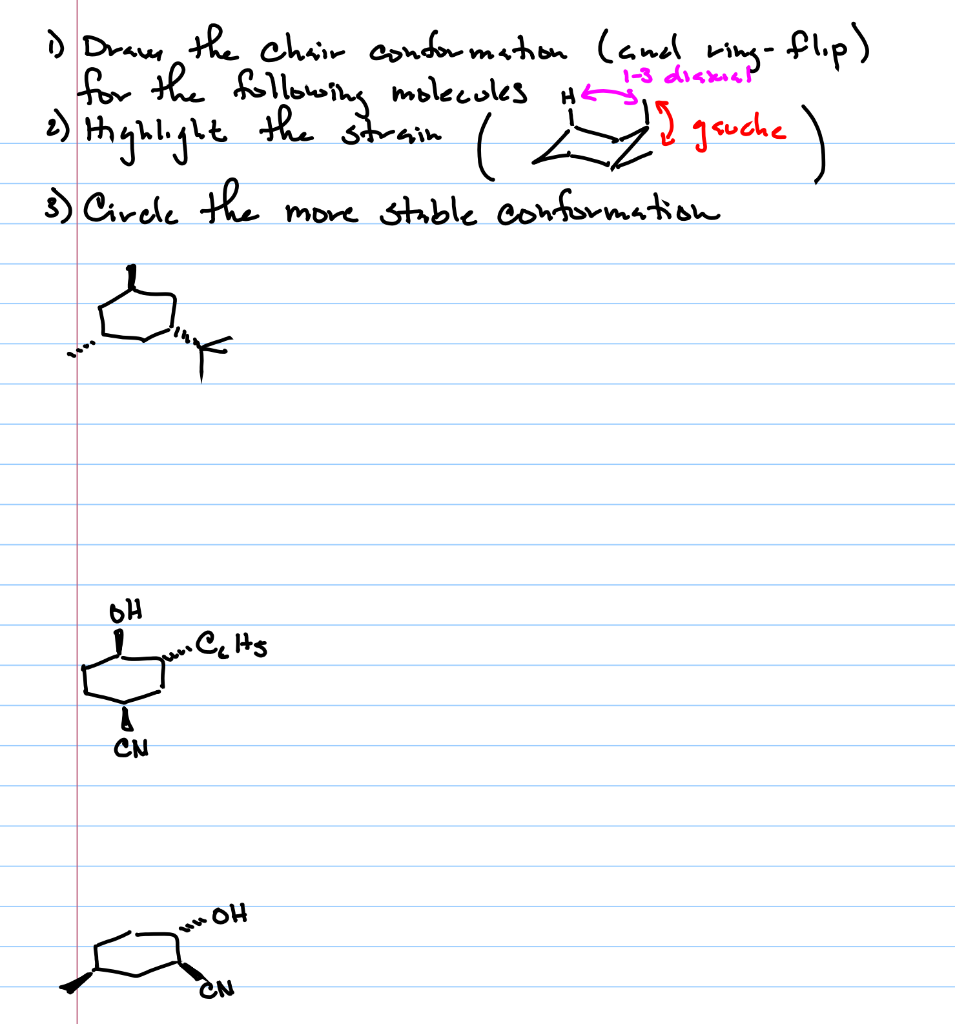 1) Draw the chair conformation (and ring-flip)
for the following molecules
1-3 diaxial
H
2) Highlight the strain ( gauche )
3) Circle the more stable conformation
OH
C6H5
CN
OH
CN